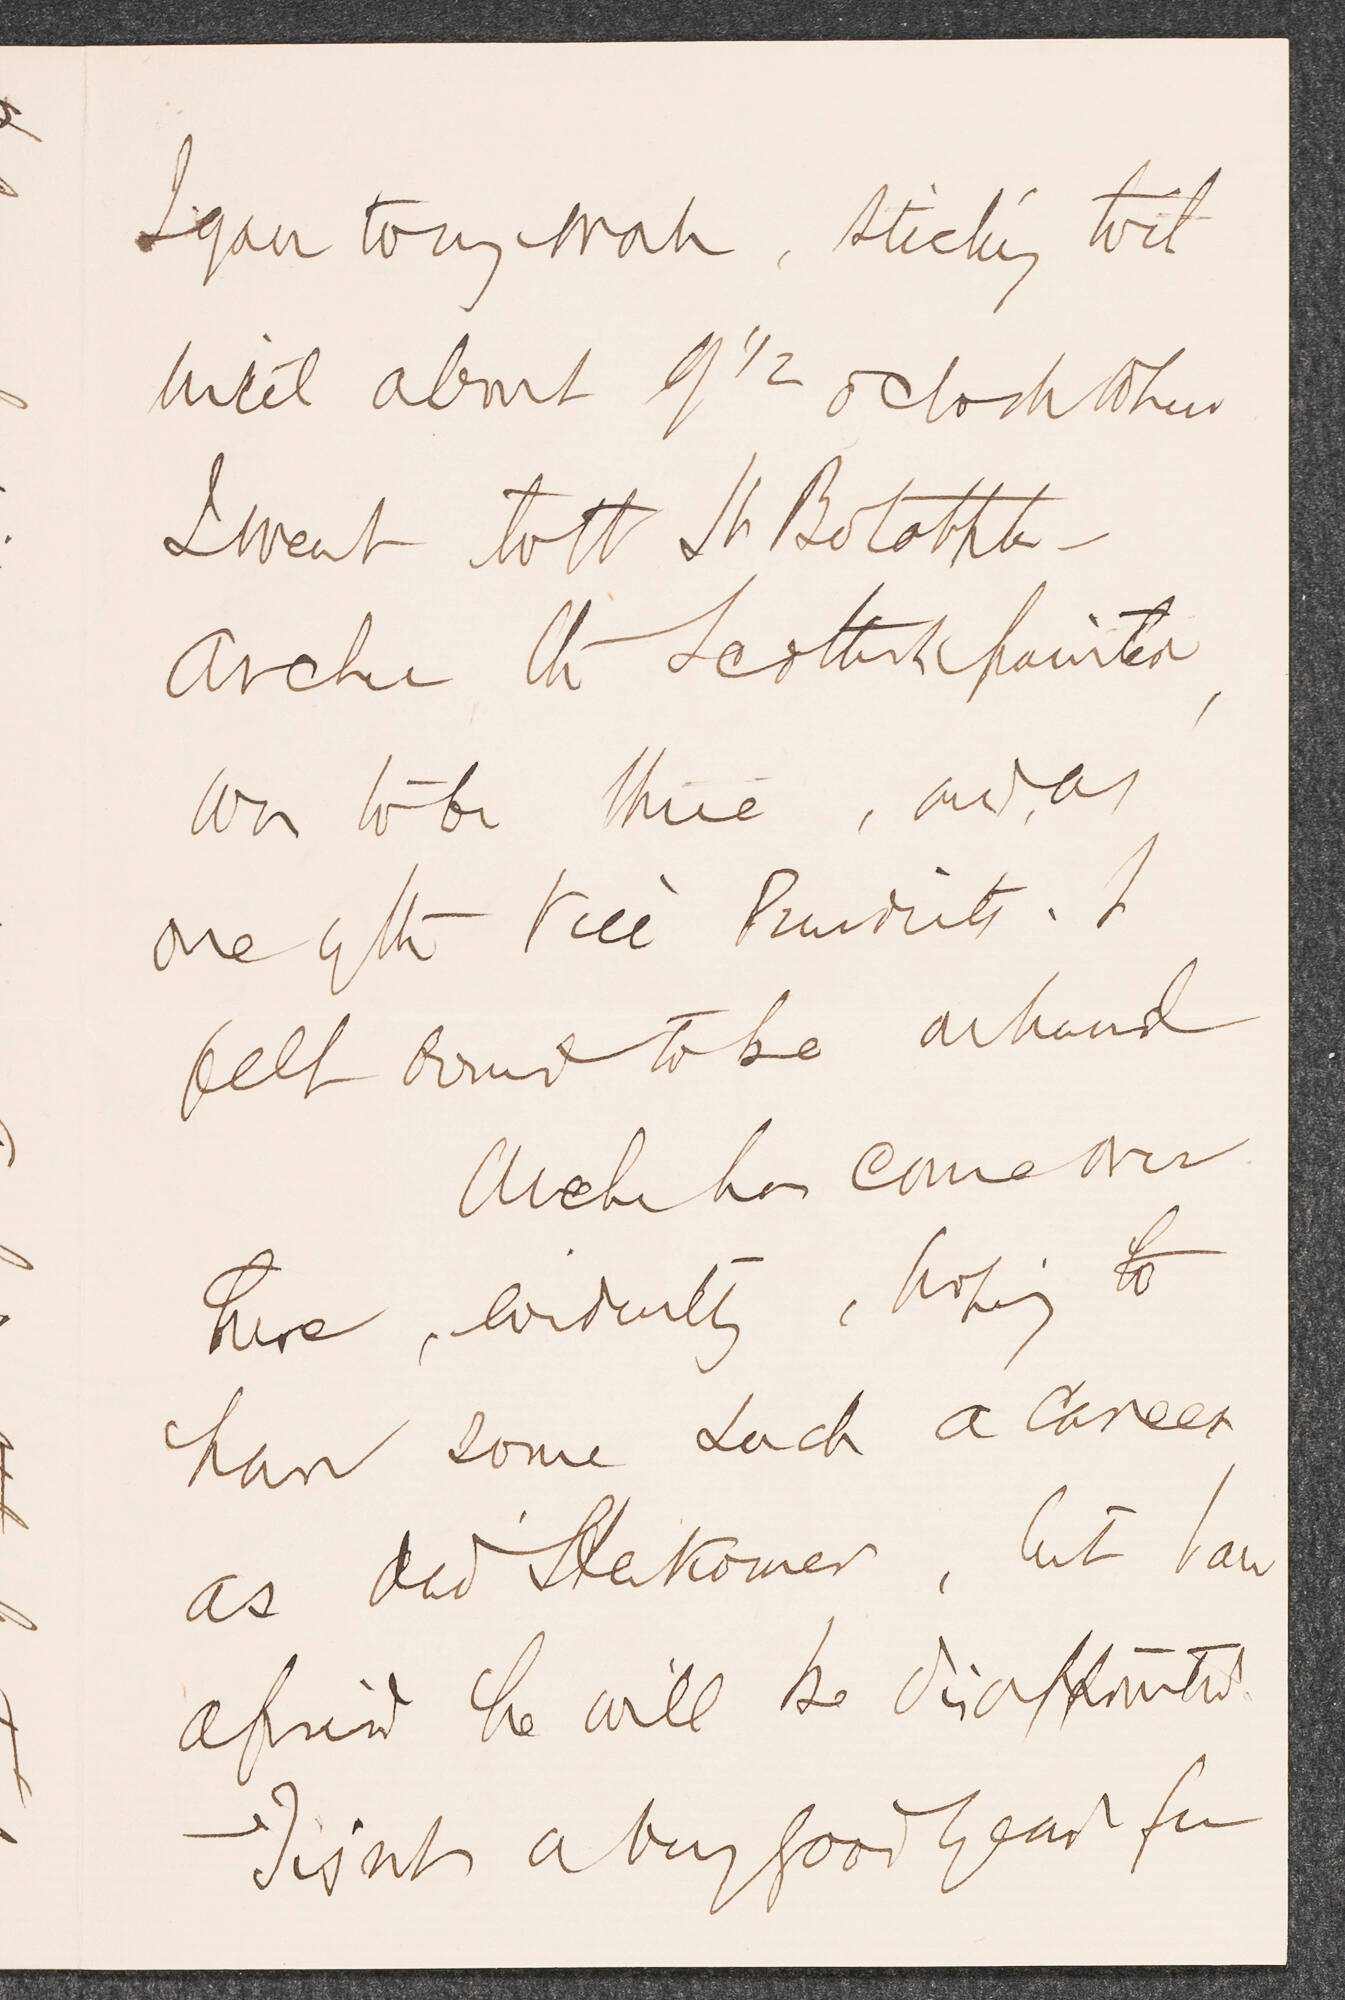 I gave to my work, sticking to it
until about 9 1/2 oclock when
I went to the St Botolph -
Archer the Scottish painter,
was to be there, and, as
one of the Vice Presidents. I
felt bound to be on hand
Archer has come over
here, evidently, hoping to
have some such a career
as did Herkomer, but I am
afraid he will be disappointed.
- Tisnt a very good year for